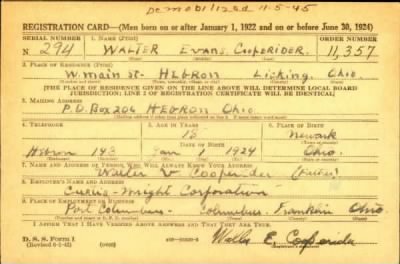 Demobilized 11-5-45
REGISTRATION CARD—(Men born on or after January 1, 1922 and on or before June 30, 1924)
SERIAL NUMBER 1. NAME (Print) ORDER NUMBER
N 294 WALTER EVANS COOPERIDER 11,357
2. PLACE OF RESIDENCE (Print)
W. main St. HEBRON Licking Ohio
[THE PLACE OF RESIDENCE GIVEN ON THE LINE ABOVE WILL DETERMINE LOCAL BOARD
JURISDICTION; LINE 2 OF REGISTRATION CERTIFICATE WILL BE IDENTICAL]
3. MAILING ADDRESS
P.O. Box 206 HEBRON Ohio
4. TELEPHONE 5. AGE IN YEARS 6. PLACE OF BIRTH
18 Newark
DATE OF BIRTH
Hebron 143 Jan 1 1924 Ohio
7. NAME AND ADDRESS OF PERSON WHO WILL ALWAYS KNOW YOUR ADDRESS
Walter V Cooperider (Father)
8. EMPLOYER'S NAME AND ADDRESS
Curtis-Wright Corporation
9. PLACE OF EMPLOYMENT OR BUSINESS
Port Columbus - Columbus, Franklin Ohio
I AFFIRM THAT I HAVE VERIFIED ABOVE ANSWERS AND THAT THEY ARE TRUE.
D. S. S. Form 1
(over)
Walter E. Cooperider